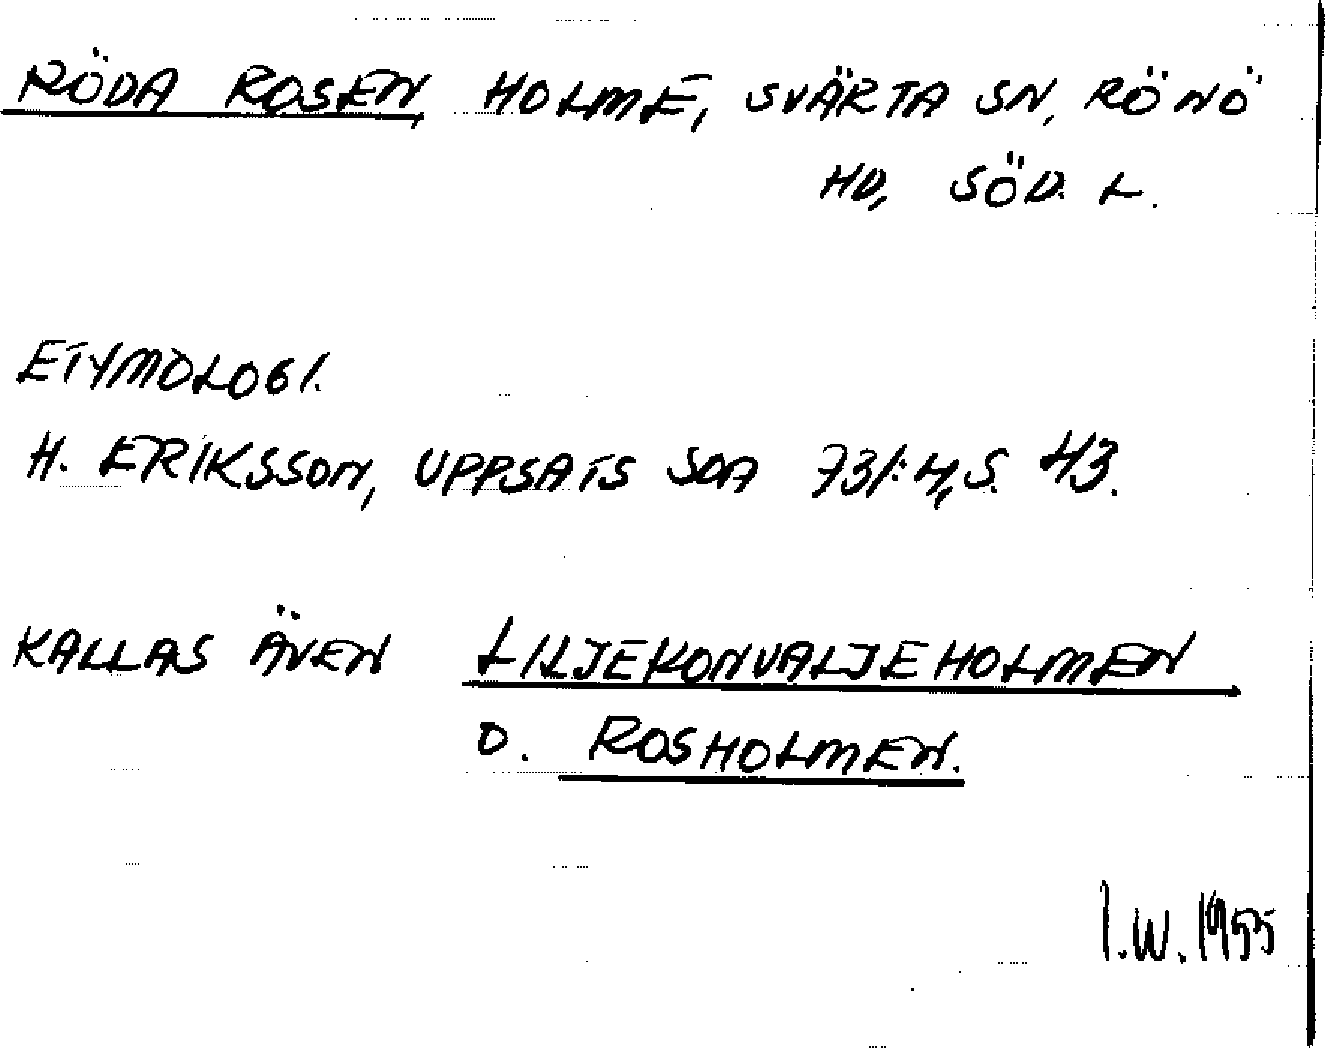 RÖDA ROSEN, HOLME, SVÄRTA SN, RÖNÖ
HD, SÖD. L.
ETYMOLOGI.
H. ERIKSSON, UPPSATS SOA 731:4, S. 43.
KALLAS ÄVEN LILJEKONVALJEHOLMEN
O. ROSHOLMEN.
I.W. 1955